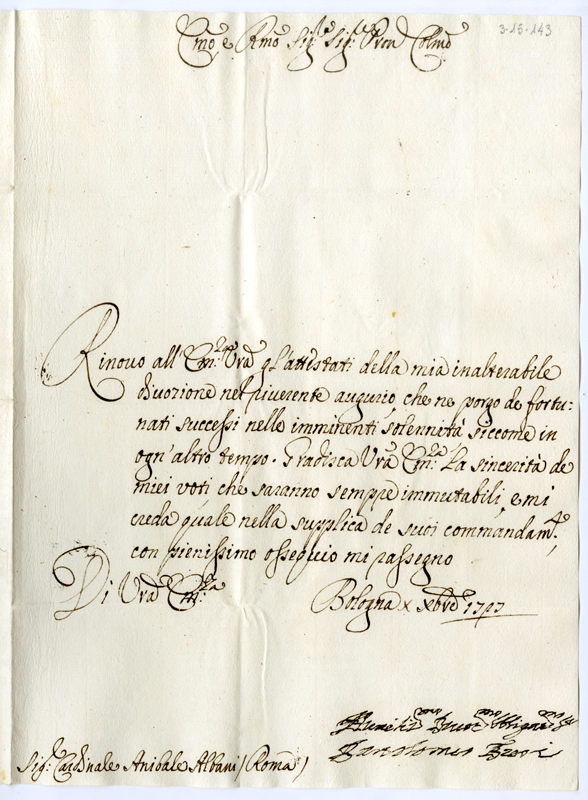 3-15-143
Emo, e Rmo Sig.re Sig.re Pron Colmo
Rinovo all' Em.za Vra gl'attestati della mia inalterabile
divozione nel riverente augurio, che ne porgo de fortu:
nati successi nelle imminenti solennità siccome in
ogn'altro tempo. Gradisca Vra Em.za la sincerità de
miei voti che saranno sempre immutabili, e mi
creda quale nella supplica de suoi commandam.ti
con pienissimo ossequio mi rassegno
Di Vra Em.za
Bologna x xbre 1727
Humiliss.mo Devot.mo Obligat.mo
Bartolomeo
Sig.r Cardinale Anibale Albani (Roma)